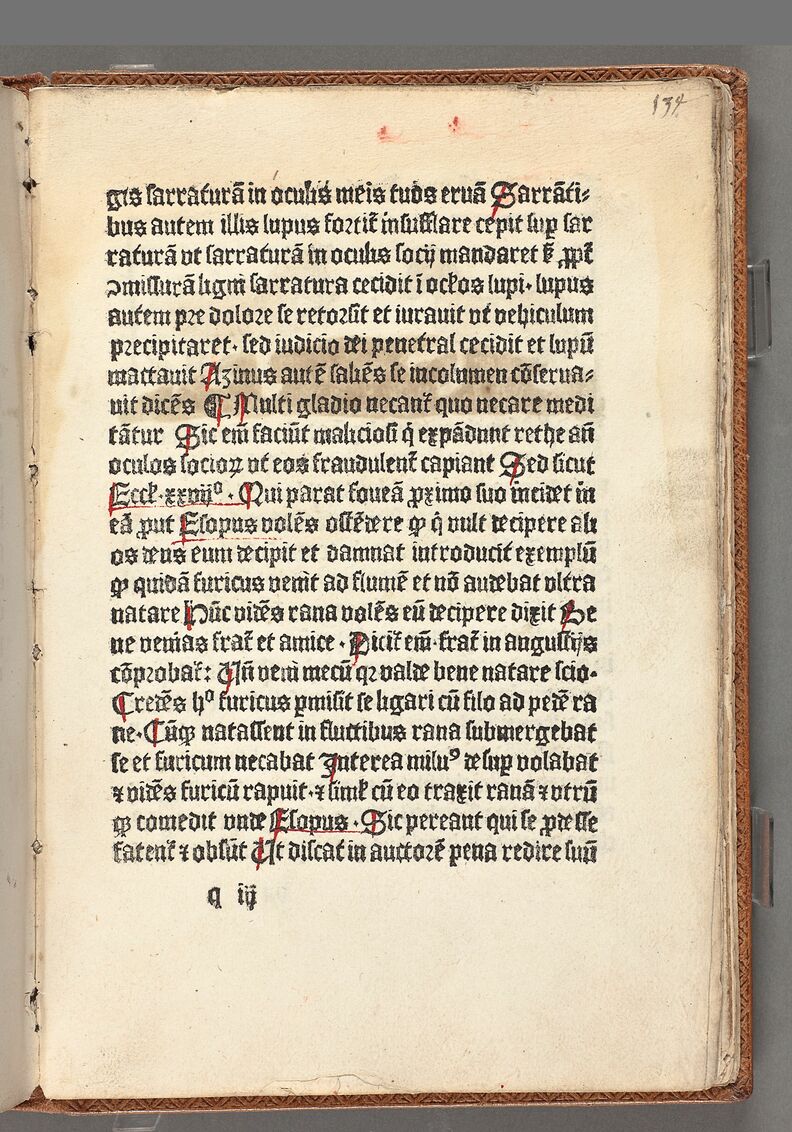 134
gis sarraturā in oculis meis tuos eruā Sarrāti⸗
bus autem illis lupus fortit̄ insufflare cepit sup̱ sar
raturā vt sarraturā in oculis socij mandaret ꝓpt̄
ꝯmissurā ligni sarratura cecidit ī oc̄los lupi· lupus
autem pre dolore se retorsit et iurauit vt vehiculum
precipitaret· sed iudicio dei penetral cecidit et lupū
mactauit Azinus autē saliēs se incolumen cōserua⸗
uit dicēs ¶ Multi gladio necant̄ quo necare medi
tātur Sic em̄ faciūt maliciosi q̇ expādunt rethe an̄
oculos socioꝝ vt eos fraudulent̄ capiant Sed sicut
Eccl̄. xxvijº· Qui parat foueā ꝓximo suo incidet in
eā ꝓut Esopus volēs ostēdere ꝙ q̇ vult decipere ali
os deus eum decipit et damnat introducit exemplū
ꝙ quidā furicus venit ad flumē et nō audebat vltra
natare Hūc vidēs rana volēs eū decipere dixit Be
ne venias frat̄ et amice· Dicit̄ em̄· frat̄ in angustijs
cōprobat̄: Un̄ veni mecū qꝛ valde bene natare scio·
Credēs hº furicus ꝑmisit se ligari cū filo ad pedē ra
ne· Cūqꝫ natassent in fluctibus rana submergebat
se et furicum necabat Interea miluꝰ desuꝑ volabat
⁊ vidēs furicū rapuit· ⁊ simł cū eo traxit ranā ⁊ vtrū
qꝫ comedit vnde Esopus· Sic pereant qui se ꝓdesse
fatent̄ ⁊ obsūt Ut discat in auctorē pena redire suū
q iij